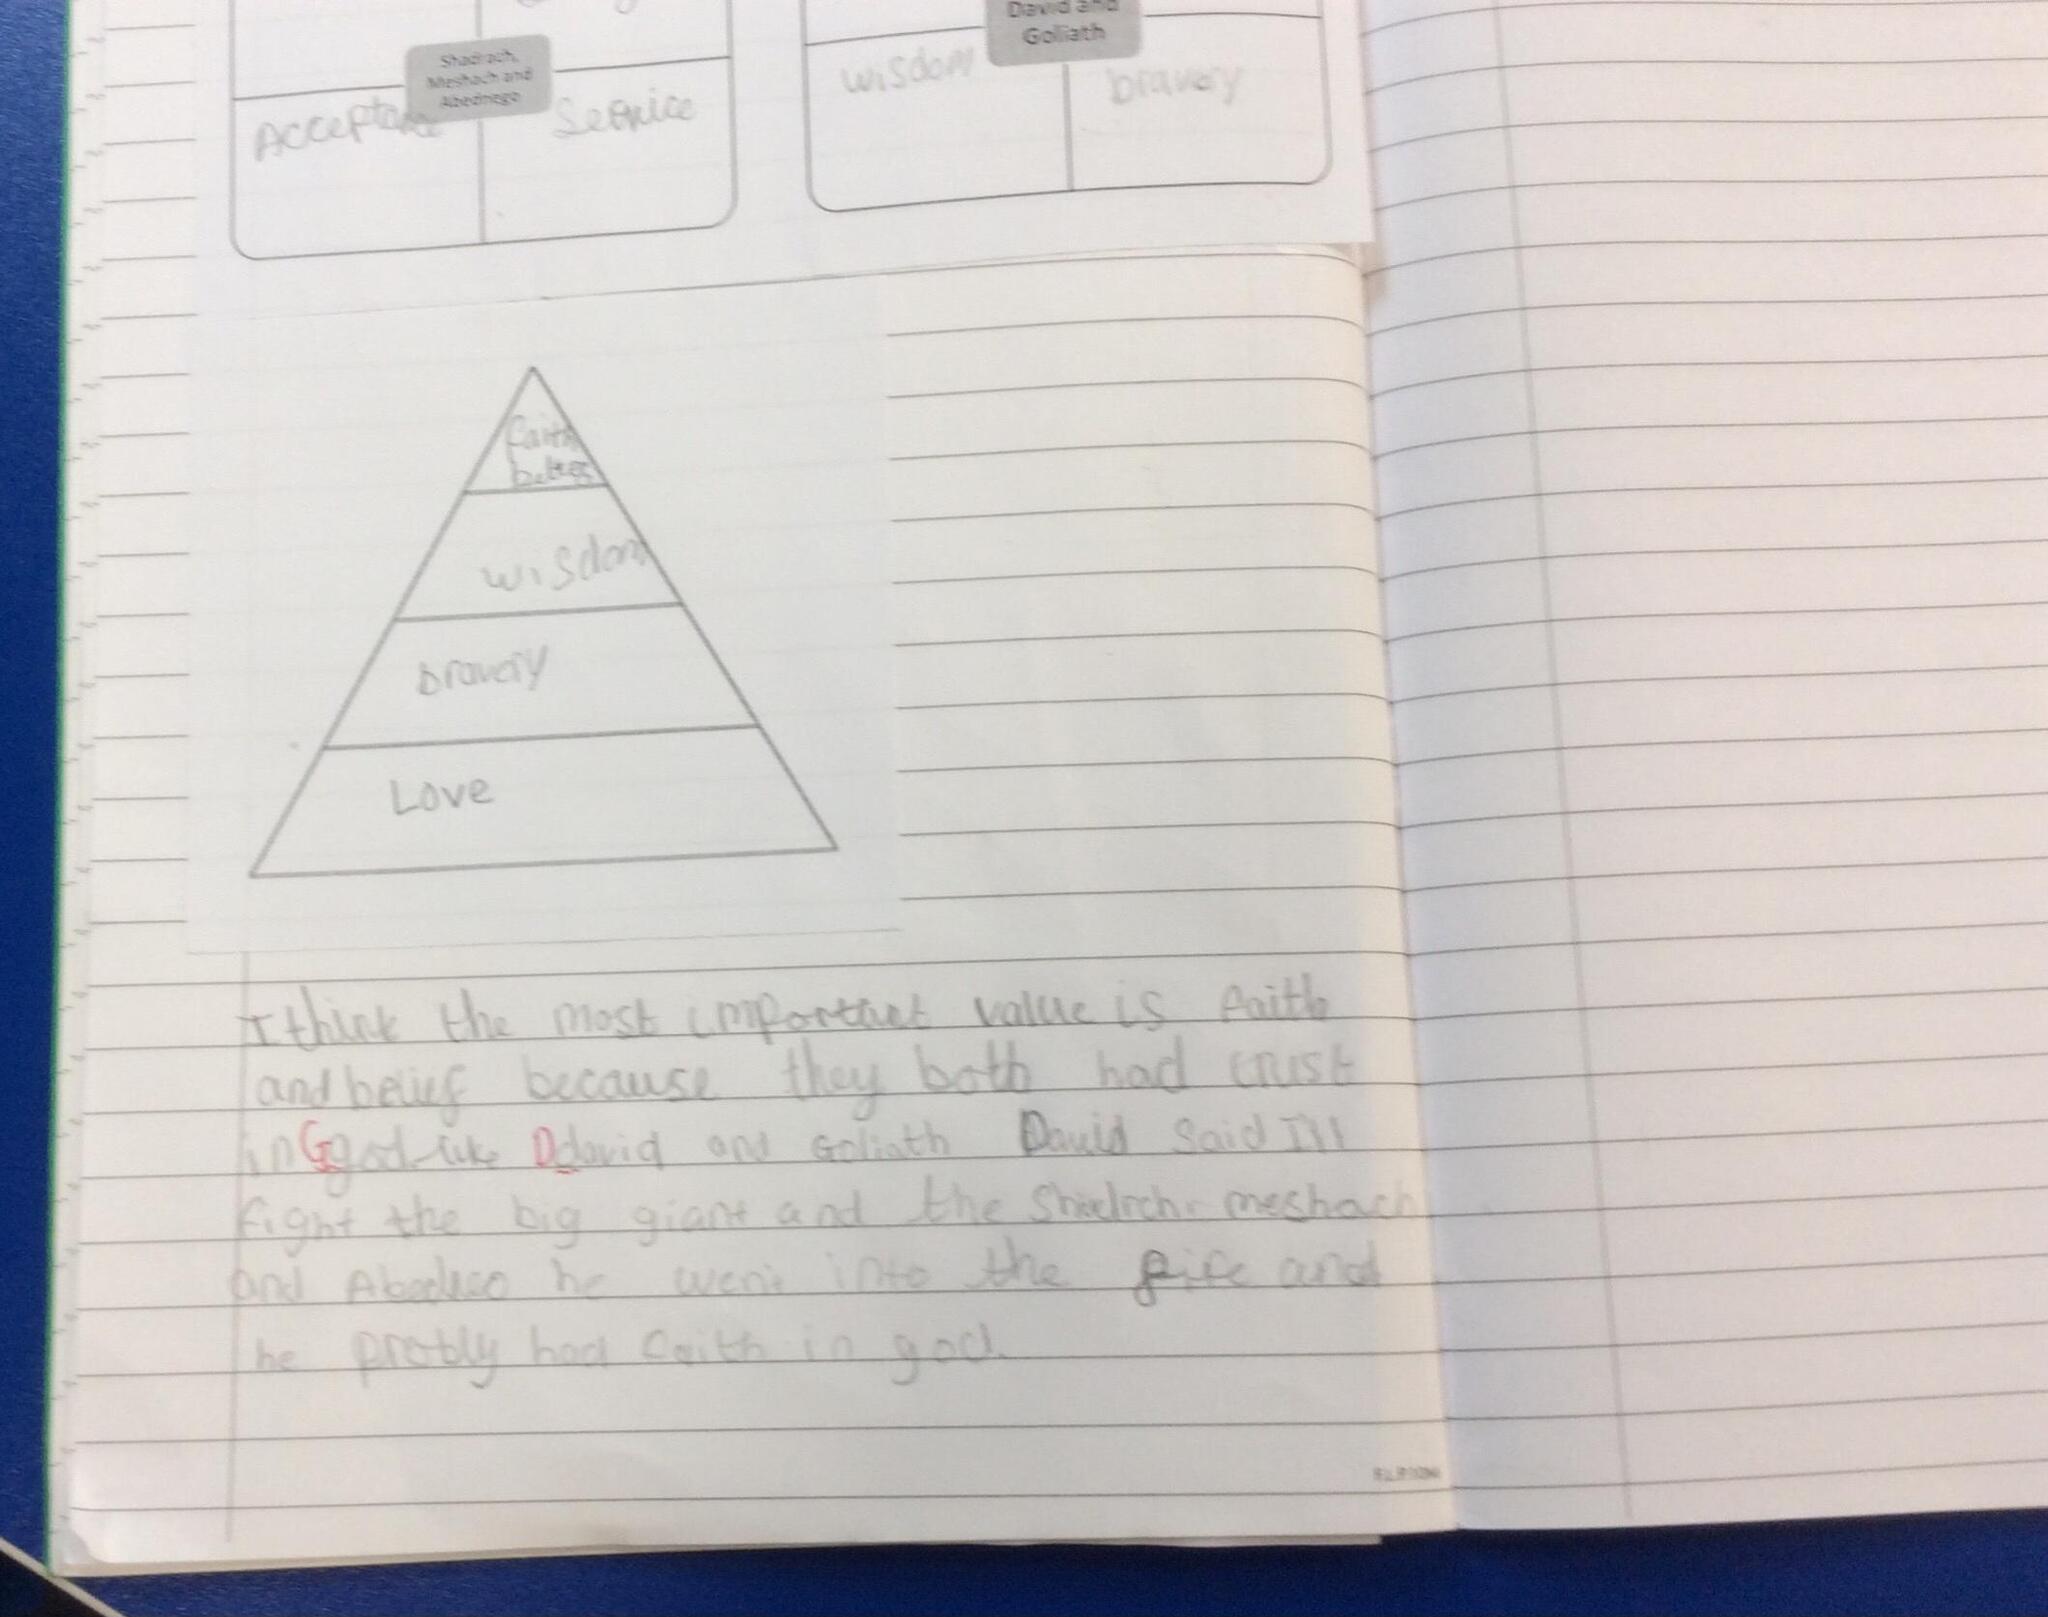 Shadrach,
Meshach and
Abednego
Acceptance
Service
David and
Goliath
wisdom
bravery
faith
belief
wisdom
bravery
Love
I think the most important value is faith
and belief because they both had trust
in Ggod like Ddavid and Goliath David said I'll
fight the big giant and the meshach
and he went into the fire and
he probly had faith in god.